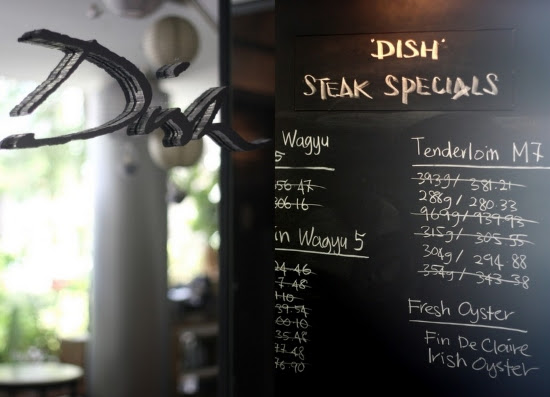 Dish
'DISH'
STEAK SPECIALS
Wagyu
5
56.47
306.16
in Wagyu 5
24.46
7.48
110
39.54
00.10
35.48
77.48
76.90
Tenderloin M7
393g/ 381.21
288g/ 280.33
969g/ 939.93
315g/ 305.55
304g/ 294.88
354g/ 343.38
Fresh Oyster
Fin De Claire
Irish Oyster